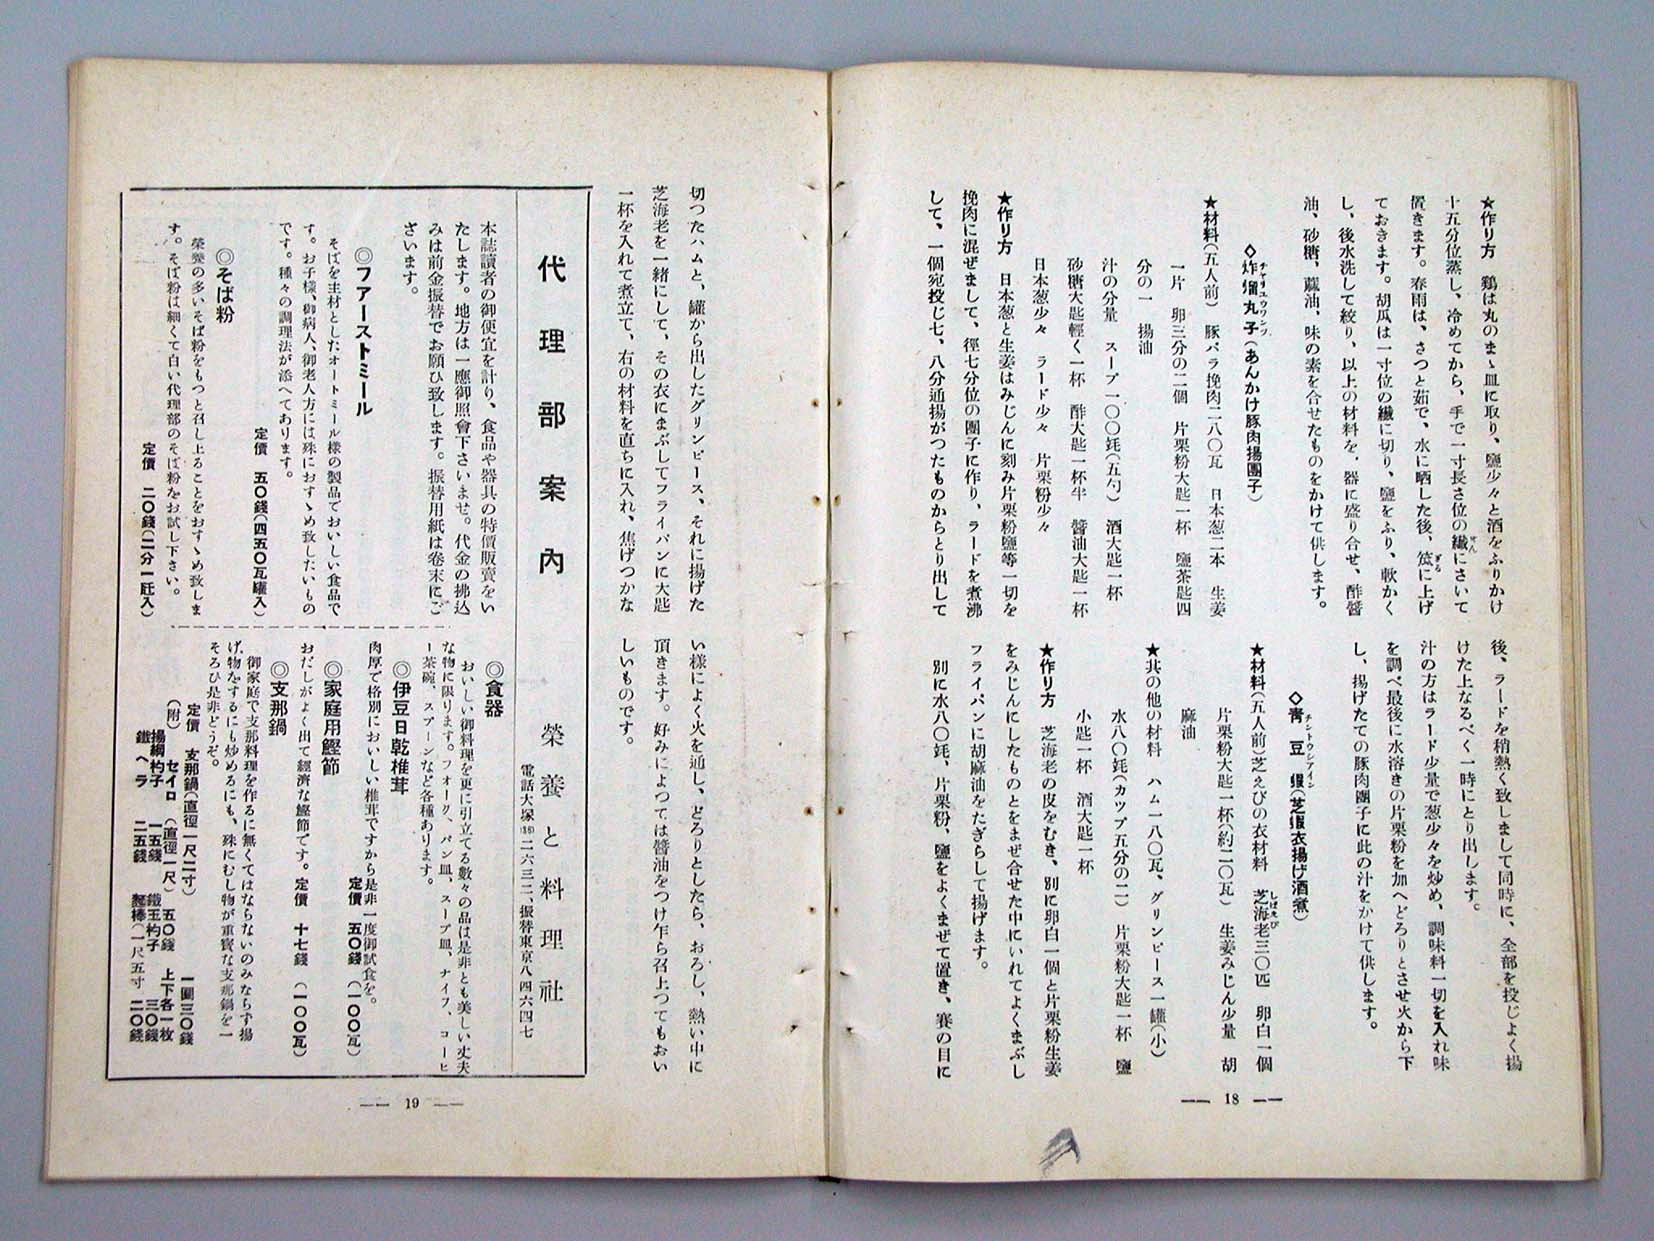 ★作り方　鷄は丸のまゝ皿に取り、鹽少々と酒をふりかけ
十五分位蒸し、冷めてから、手で一寸長さ位の纎にさいて
置きます。春雨は、さつと茹で、水に晒した後、笊に上げ
ておきます。胡瓜は一寸位の纎に切り、鹽をふり、軟かく
し、後水洗して絞り、以上の材料を、器に盛り合せ、酢醤
油、砂糖、蔴油、味の素を合せたものをかけて供します。
◇炸溜丸子(あんかけ豚肉揚團子)
★材料(五人前)　豚バラ挽肉二八〇瓦　日本葱二本　生姜
一片　卵三分の二個　片栗粉大匙一杯　鹽茶匙四
分の一　揚油
汁の分量　スープ一〇〇竓(五勺)　酒大匙一杯
砂糖大匙輕く一杯　酢大匙一杯半　醤油大匙一杯
日本葱少々　ラード少々　片栗粉少々
★作り方　日本葱と生姜はみじんに刻み片栗粉鹽等一切を
挽肉に混ぜまして、徑七分位の團子に作り、ラードを煮沸
して、一個宛投じ七、八分通揚がつたものからとり出して
後、ラードを稍熱く致しまして同時に、全部を投じよく揚
けた上なるべく一時にとり出します。
汁の方はラード少量で葱少々を炒め、調味料一切を入れ味
を調べ最後に水溶きの片栗粉を加へどろりとさせ火から下
し、揚げたての豚肉團子に此の汁をかけて供します。
◇靑豆蝦(芝蝦衣揚げ酒煮)
★材料(五人前)芝えびの衣材料　芝海老三〇匹　卵白一個
片栗粉大匙一杯(約二〇瓦)　生姜みじん少量　胡
麻油
★其の他の材料　ハム一八〇瓦、グリンピース一罐(小)
水八〇竓(カツプ五分の二)　片栗粉大匙一杯　鹽
小匙一杯　酒大匙一杯
★作り方　芝海老の皮をむき、別に卵白一個と片栗粉生姜
をみじんにしたものとをまぜ合せた中にいれてよくまぶし
フライパンに胡麻油をたぎらして揚げます。
別に水八〇竓、片栗粉、鹽をよくまぜて置き、賽の目に
― 18 ―
切つたハムと、罐から出したグリンピース、それに揚げた
芝海老を一緒にして、その衣にまぶしてフライパンに大匙
一杯を入れて煮立て、右の材料を直ちに入れ、焦げつかな
い樣によく火を通し、どろりとしたら、おろし、熱い中に
頂きます。好みによつては醤油をつけ乍ら召上つてもおい
しいものです。
代理部案內
榮養と料理社
電話大塚(86)二六三二、振替東京八四六四七
本誌讀者の御便宜を計り、食品や器具の特價販賣をい
たします。地方は一應御照會下さいませ。代金の拂込
みは前金振替でお願ひ致します。振替用紙は卷末にご
ざいます。
◎フアーストミール
そばを主材としたオートミール樣の製品でおいしい食品で
す。お子樣、御病人、御老人方には殊におすゝめ致したいもの
です。種々の調理法が添へてあります。
定價　五〇錢(四五〇瓦罐入)
◎そば粉
榮養の多いそば粉をもつと召し上ることをおすゝめ致しま
す。そば粉は細くて白い代理部のそば粉をお試し下さい。
定價　二〇錢(二分一瓩入)
◎食器
おいしい御料理を更に引立てる數々の品は是非とも美しい丈夫
な物に限ります。フオーク、パン皿、スープ皿、ナイフ、コーヒ
ー茶碗、スプーンなど各種あります。
◎伊豆日乾椎茸
肉厚で格別においしい椎茸ですから是非一度御試食を。
定價　五〇錢(一〇〇瓦)
◎家庭用鰹節
おだしがよく出て經濟な鰹節です。定價　十七錢　(一〇〇瓦)
◎支那鍋
御家庭で支那料理を作るに無くてはならないのみならず揚
げ物をするにも炒めるにも、殊にむし物が重寶な支那鍋を一
そろひ是非どうぞ。
定價　支那鍋(直徑一尺二寸)　一圓三〇錢
(附)　セイロ(直徑一尺)　五〇錢　上下各一枚
揚網杓子　一五錢　鐵玉杓子　三〇錢
鐵ヘラ　二五錢　麵棒(一尺五寸　二〇錢
― 19 ―